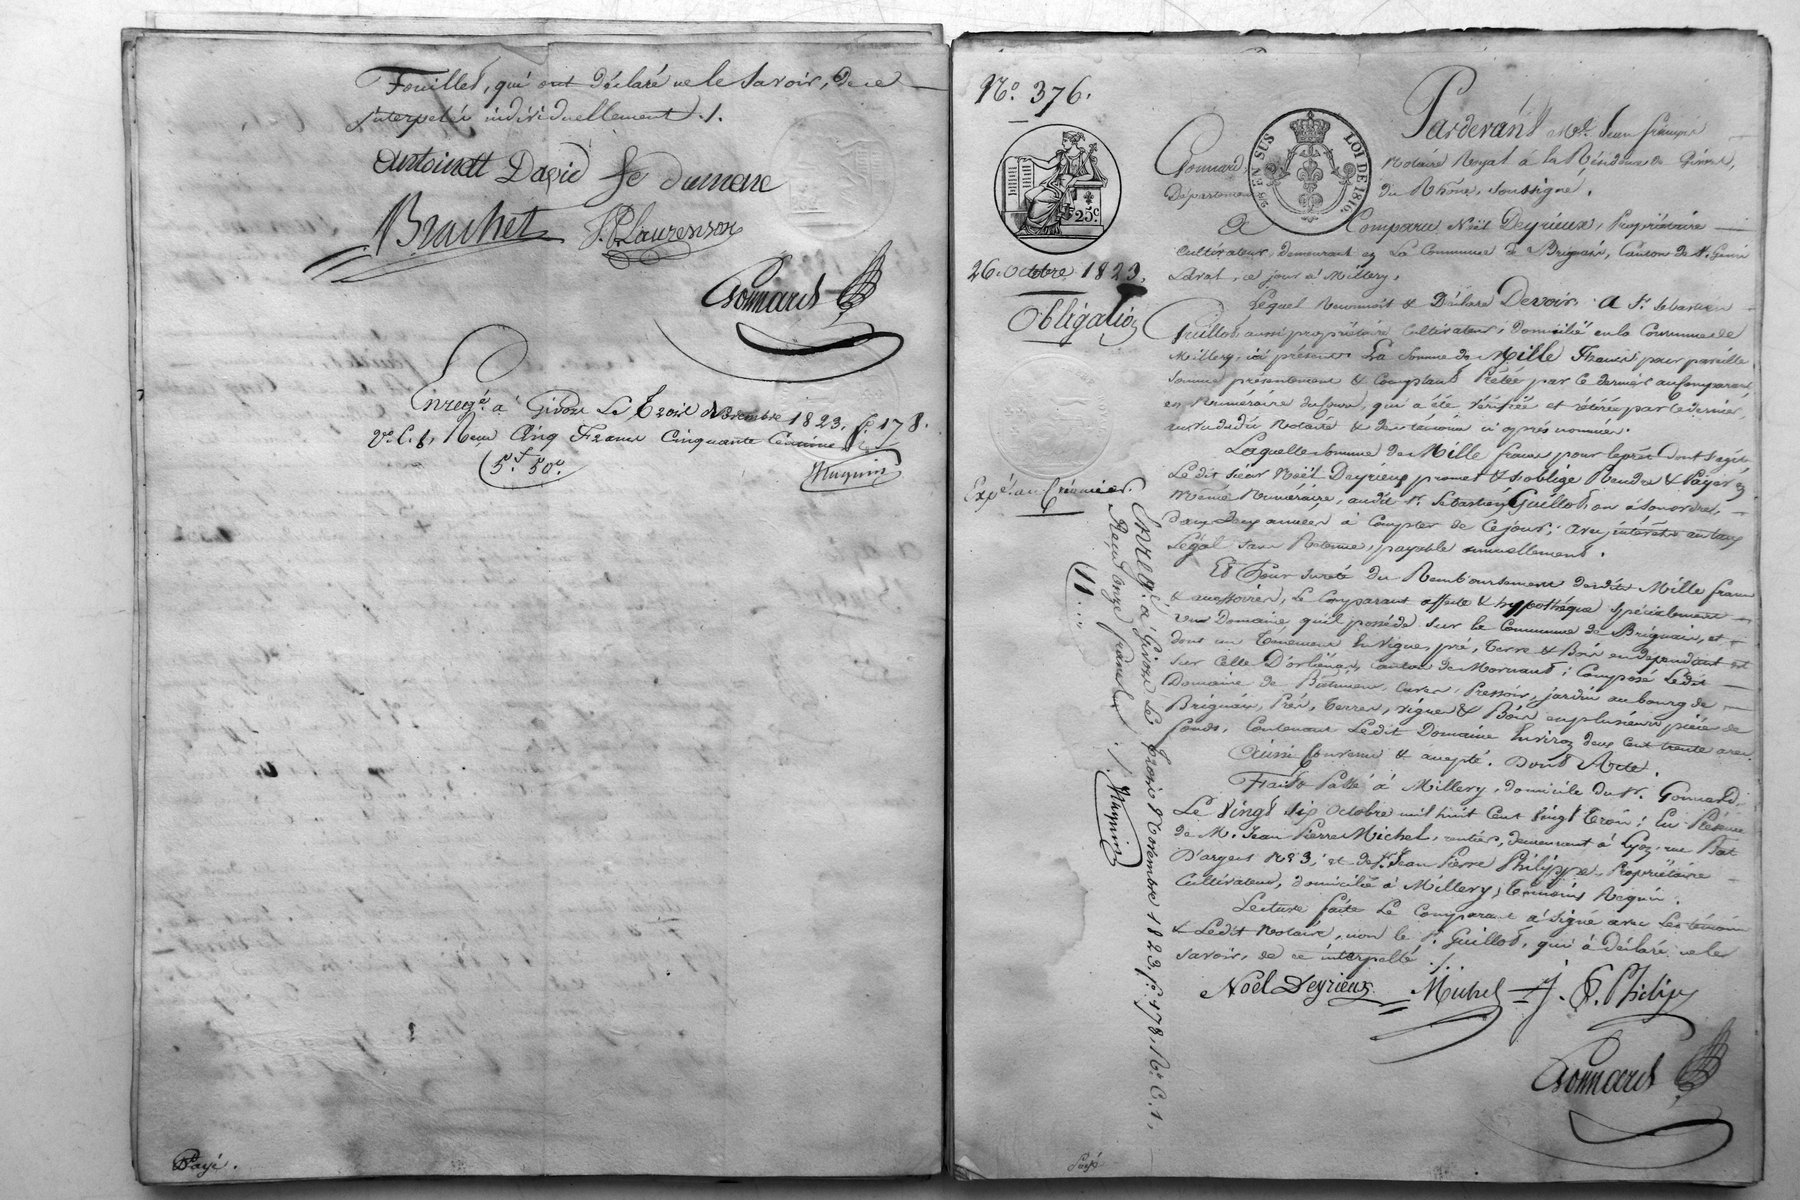 Fouillet, qui ont déclaré ne le savoir, de ce
interpelés individuellement ./.
Antoinett David fe dumene
Brachet J. P. Laurenson
Gonnard
Enregé. à Givors Le trois novembre 1823, fo. 178.
Vo. C. 6, Reçu Cinq Francs Cinquante Centimes
5f. 50c.
Payé.
No. 376.
25c
26. Octobre 1823.
Obligation
Expé. au Créancier.
EN SUS LOI DE 1816.
Pardevant Me. Jean François
Gonnard, Notaire Royal à la Résidence de Givors,
Département du Rhône, soussigné,
A Comparu Noël Deyrieux, Propriétaire
Cultivateur, demeurant en La Commune de Brignais, Canton de St. Genis
Laval, ce jour à Millery,
Lequel Reconnoît & Déclare Devoir A Sr. Sébastien
Guillot aussi propriétaire Cultivateur, domicilié en la Commune de
Millery, ici présent, La Somme de Mille Francs, pour pareille
Somme présentement & Comptant Prêtée par ce dernier au Comparant
en Numéraire du Cours, qui a été Vérifiée et retirée par ce dernier,
au vu dudit Notaire & des témoins ci après nommés.
Laquelle Somme de Mille francs, pour le prêt Dont s'agit
Ledit Sieur Noël Deyrieux promet & s'oblige Rendre & Payer en
Même Numéraire, audit Sr. Sébastien Guillot ou à Son ordre,
Dans deux années à Compter de Ce jour, avec intérêts au taux
Légal Sans Retenue, payable annuellement.
Et Pour Sureté du Remboursement desdits Mille francs
& accessoires, Le Comparant affecte & hypothèque Spécialement
un Domaine, qu'il possède Sur la Commune de Brignais, et
dont un tènement En Vignes, pré, Terre & Bois en dépendant est
Sur Celle D'orliénas, Canton de Mornant; Composé Ledit
Domaine de Bâtiment, Cuver, Pressoir, jardin au bourg de
Brignais, Prés, Terres, Vignes & Bois en plusieurs pièces de
fonds, Contenant Ledit Domaine Environ deux Cent trente ares
Ainsi Convenu & accepté. Dont Acte.
Fait & Passé à Millery, domicile du Sr. Gonnard,
Le Vingt Six Octobre mil huit Cent Vingt Trois; En Présence
de M. Jean Pierre Michel, rentier, demeurant à Lyon, rue Bat
D'argent No 3, et de Sr. Jean Pierre Philippe, Propriétaire
Cultivateur, domicilié à Millery, Témoins Requis.
Lecture faite Le Comparant à Signé avec Les témoins
& Ledit Notaire, non le Sr. Guillot, qui à déclaré ne le
Savoir, de ce interpellé ./.
Noël Deyrieux Michel J. P. Philippe
Gonnard
Enregé. à Givors Le trois Novembre 1823, fo. 178, Ro. C. 1,
Reçu Onze francs ./.
11
Payé